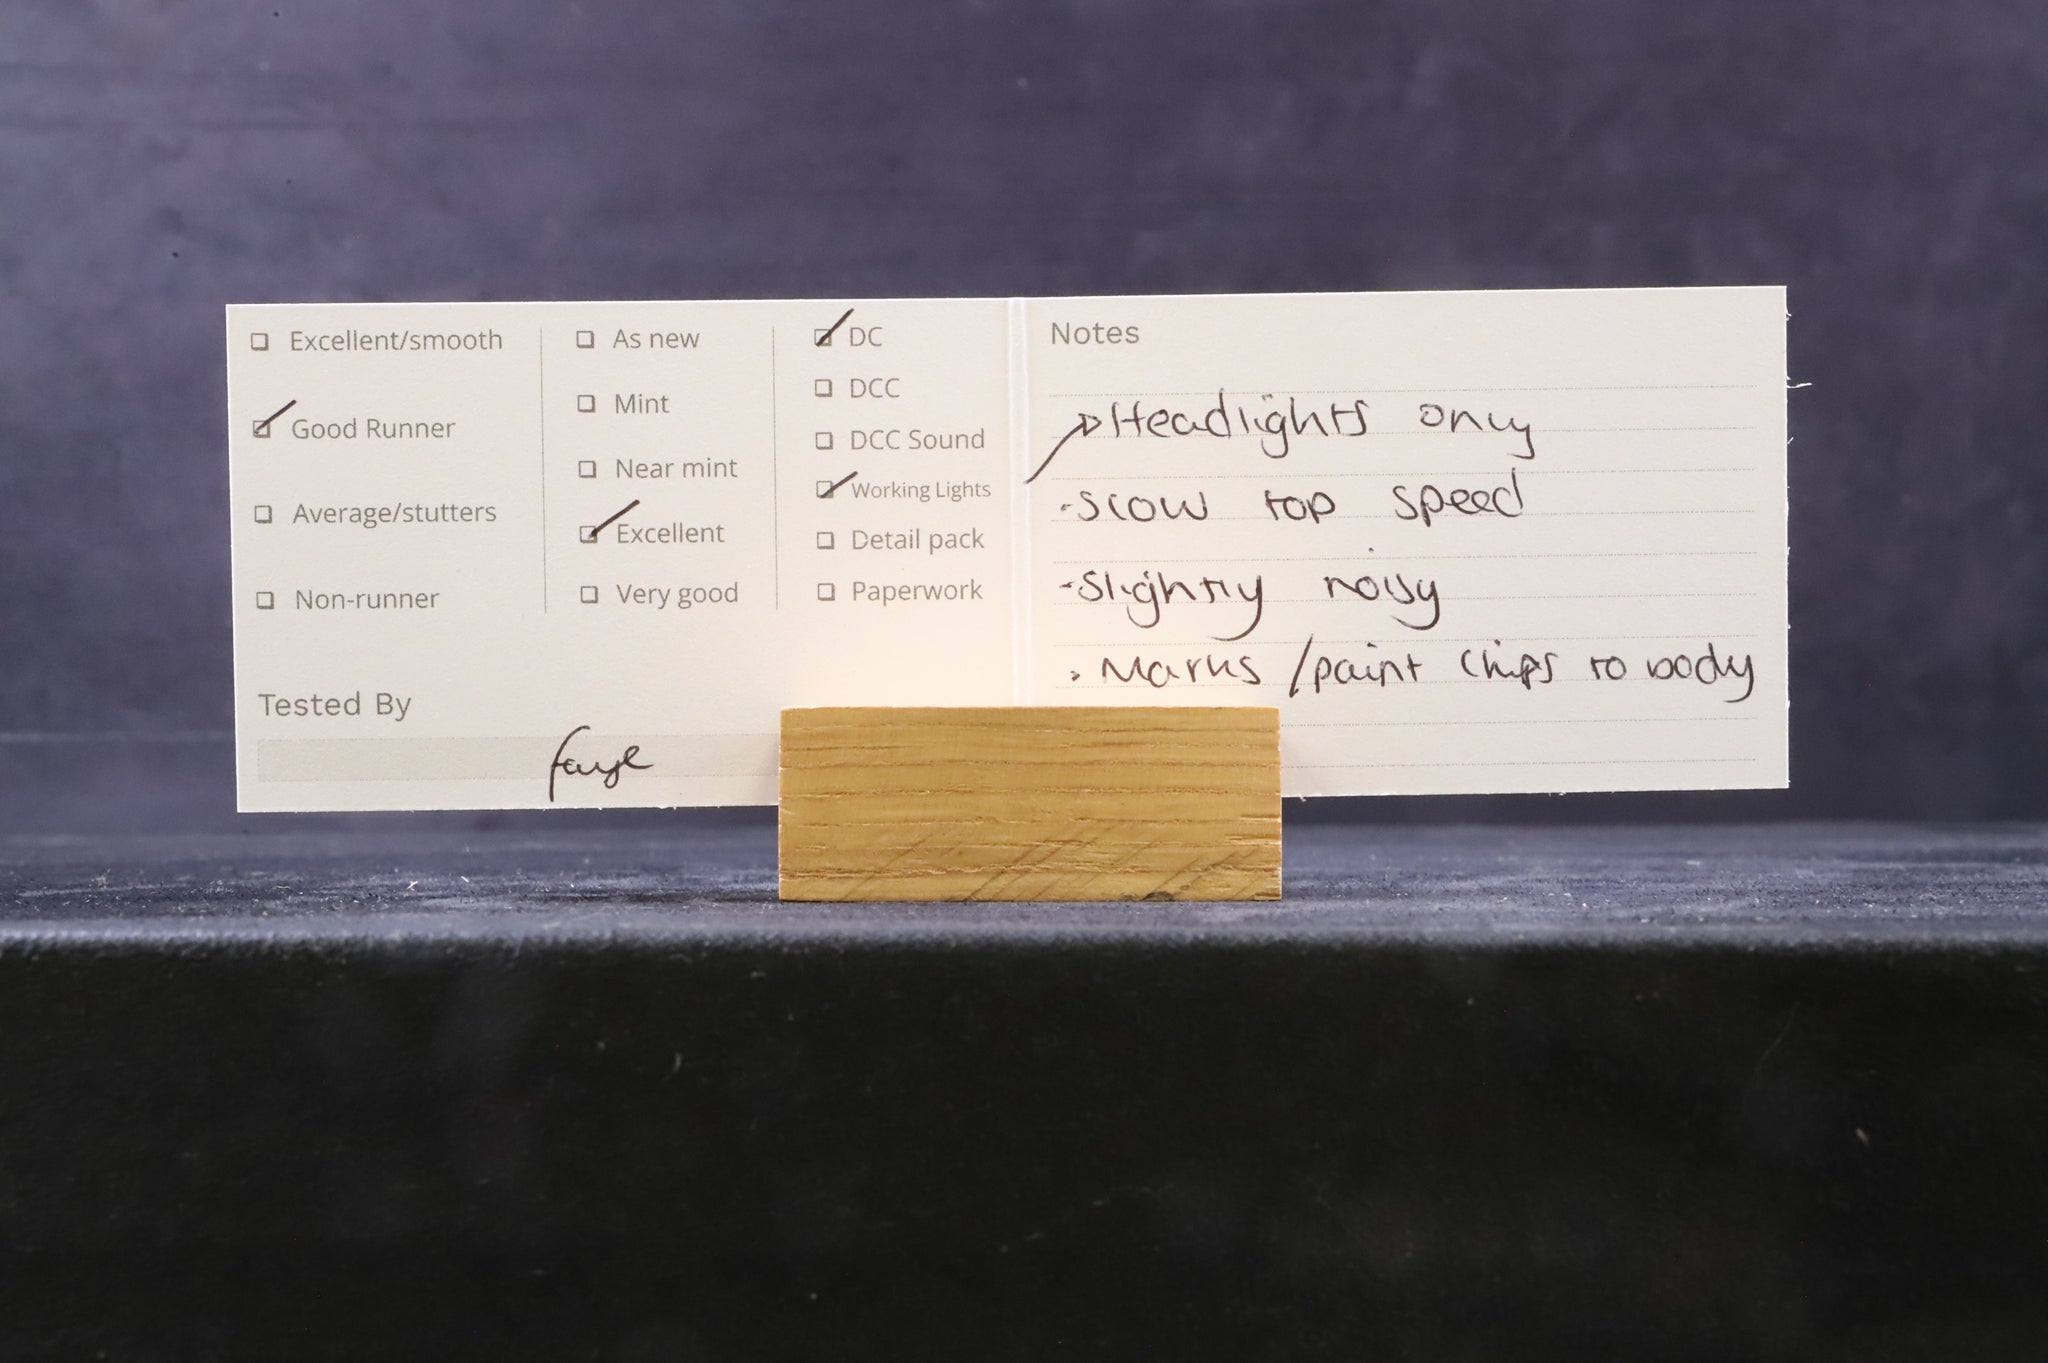 Excellent/smooth
Good Runner
Average/stutters
Non-runner
As new
Mint
Near mint
Excellent
Very good
DC
DCC
DCC Sound
Working Lights
Detail pack
Paperwork
Tested By
faye
Notes
Headlights only
-Slow top speed
-Slightly noisy
• Marks / paint chips to body